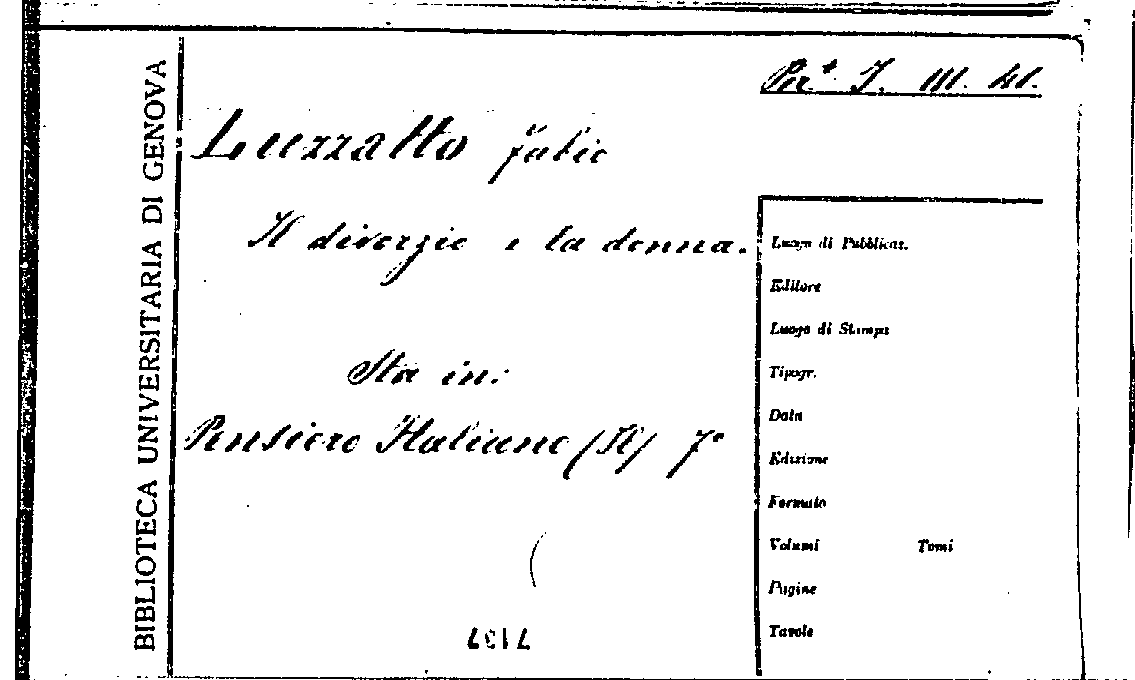 BIBLIOTECA UNIVERSITARIA DI GENOVA
Per.t J. III. 41.
Luzzatto Fabio
Il divorzio e la donna.
Sta in:
Pensiero Italiano (Il) 7°
Luogo di Pubblicaz.
Editore
Luogo di Stampa
Tipogr.
Data
Edizione
Formato
Volumi Tomi
Pagine
Tavole